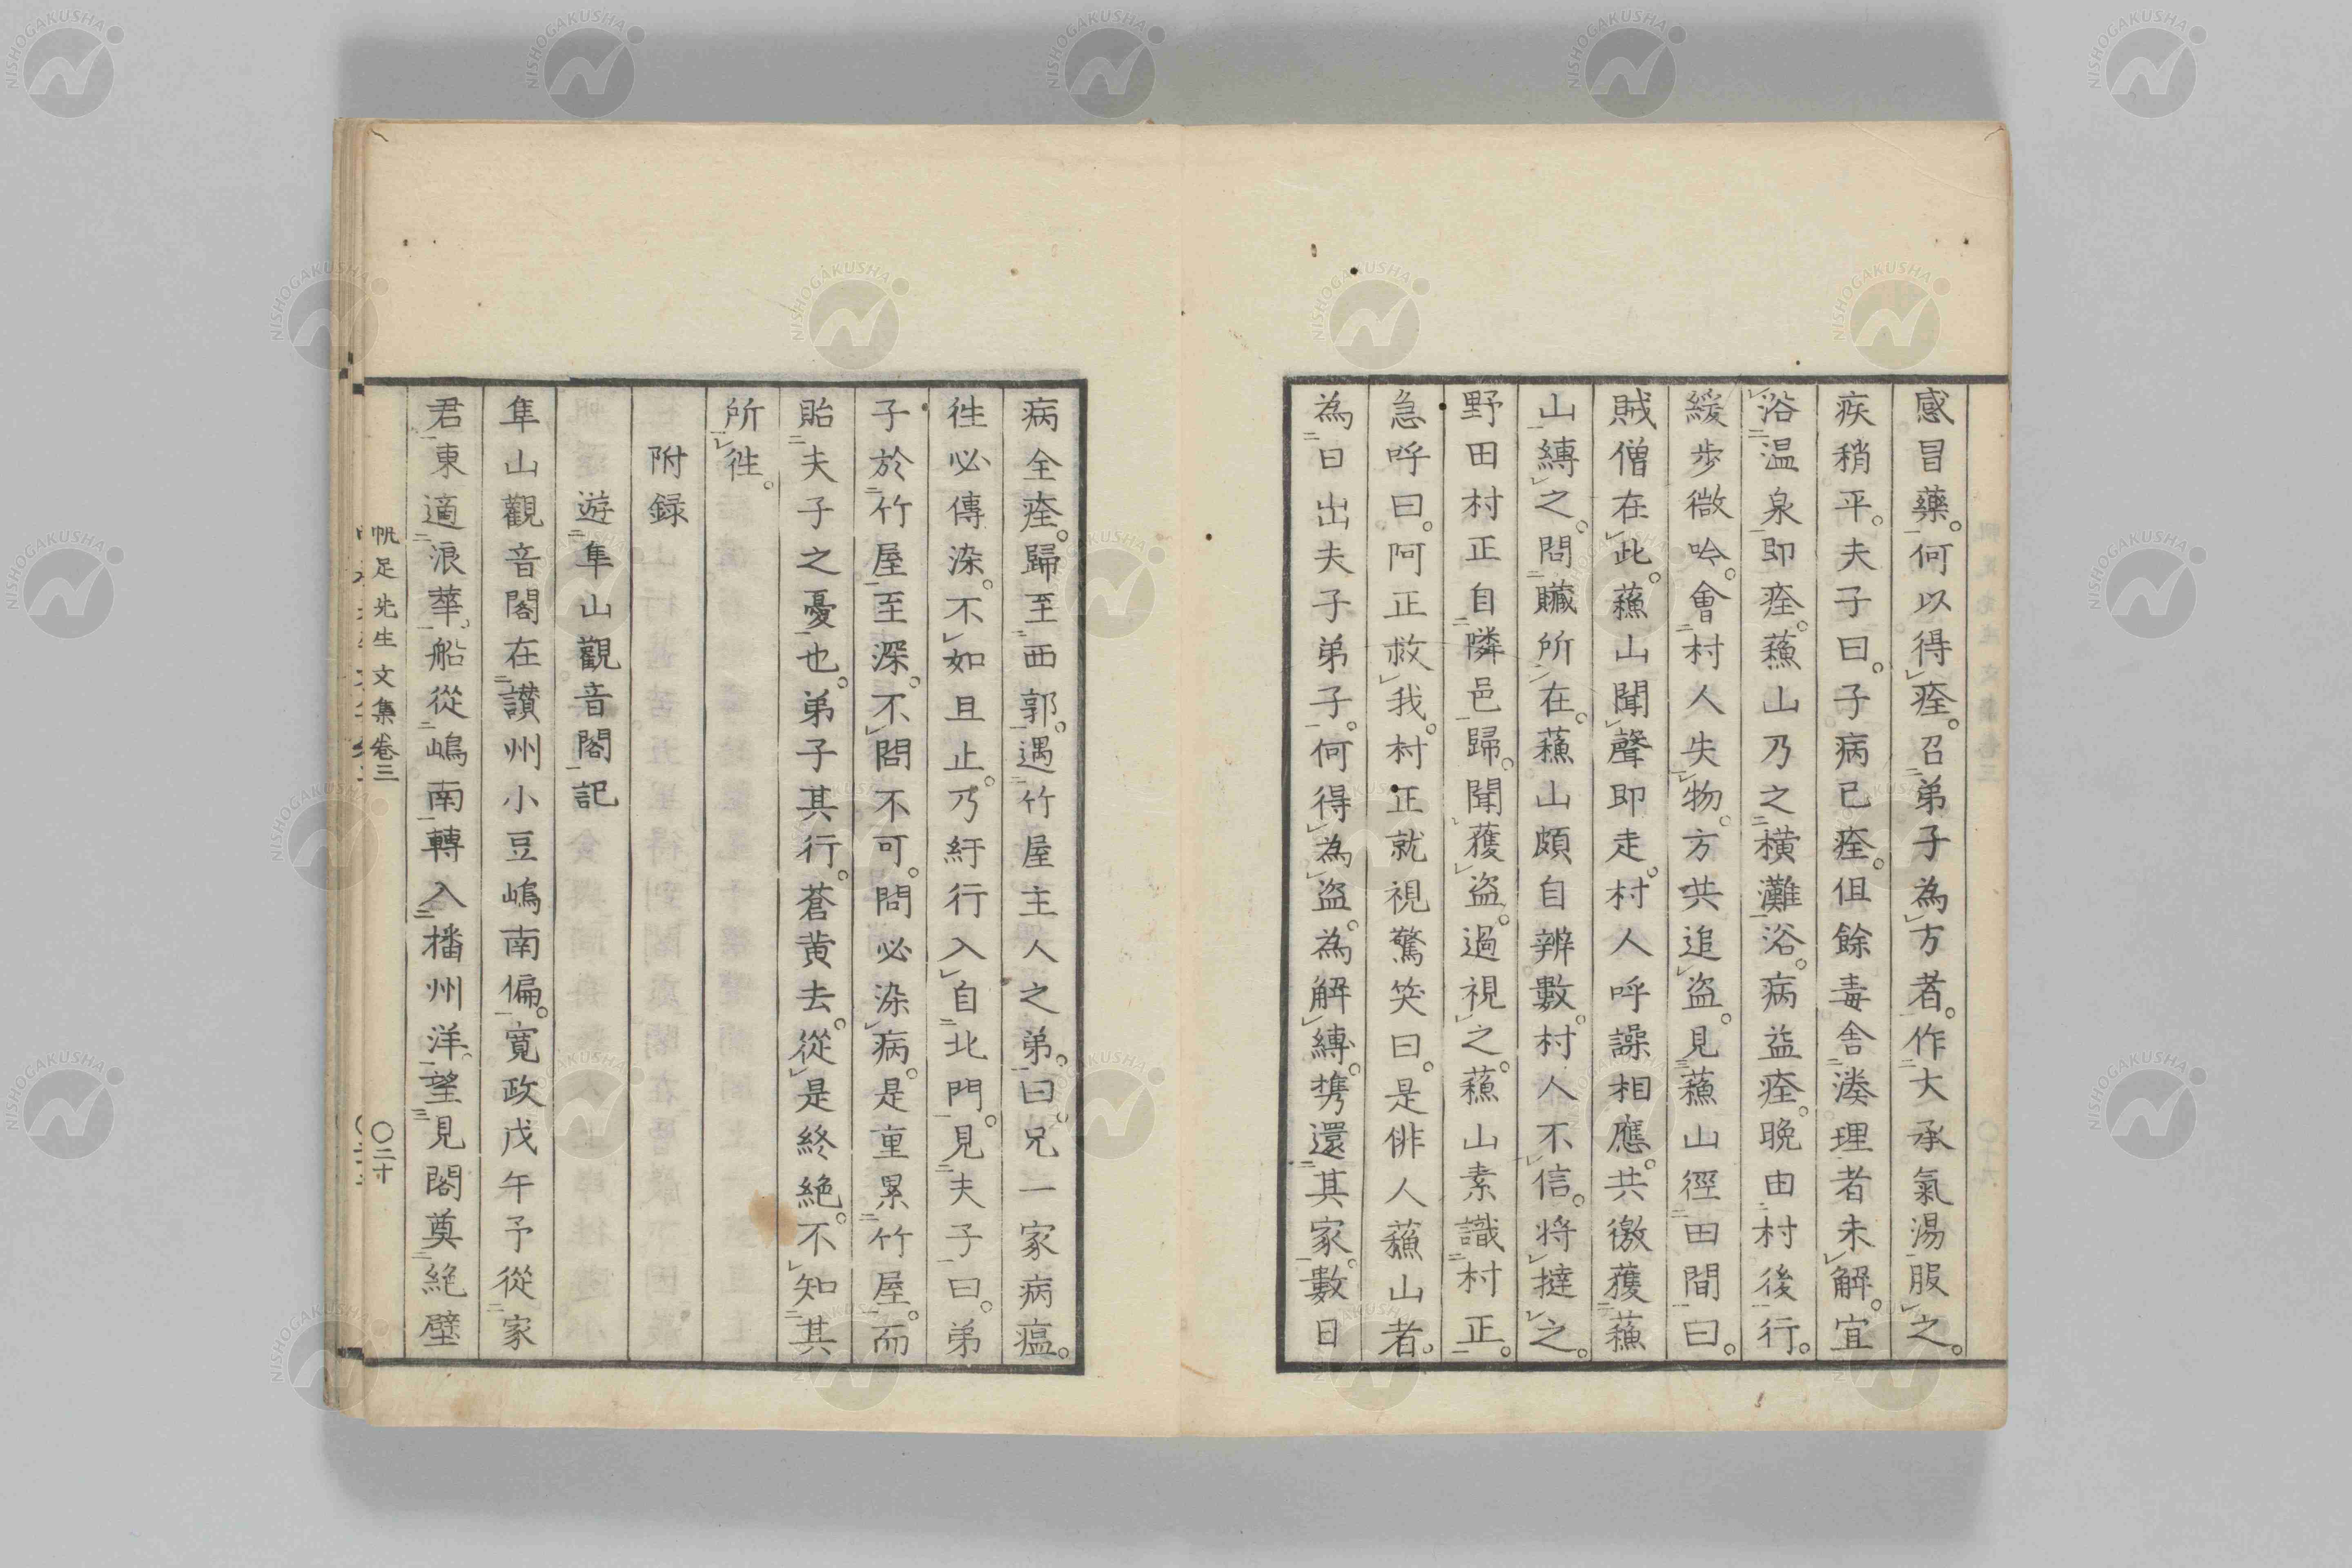 感冒藥。何以得痊。召弟子為方者。作大承氣湯服之。
疾稍平。夫子曰。子病已痊。但餘毒舍湊理者未解。宜
浴温泉即痊。蘓山乃之横灘浴。病益痊。晩由村後行。
緩歩微吟。會村人失物。方共追盗。見蘓山徑田間曰。
賊僧在此。蘓山聞聲即走。村人呼譟相應。共徼獲蘓
山縛之。問贓所在。蘓山頗自辨數。村人不信。将撻之。
野田村正自隣邑歸。聞獲盗。過視之。蘓山素識村正。
急呼曰。阿正救我。村正就視驚笑曰。是俳人蘓山者。
為曰出夫子弟子。何得為盗。為解縛。携還其家。數日
病全痊。歸至西郭。遇竹屋主人之弟。曰。兄一家病瘟。
徃必傳染。不如且止。乃紆行入自北門。見夫子曰。弟
子於竹屋至深。不問不可。問必染病。是重累竹屋。而
貽夫子之憂也。弟子其行。蒼黄去。從是終絶。不知其
所徃。
附録
遊隼山觀音閣記
隼山觀音閣在讃州小豆嶋南偏。寛政戊午予從家
君東適浪華。船從嶋南轉入播州洋。望見閣奠絶壁
帆足先生文集巻三
〇二十
NISHOGAKUSHA